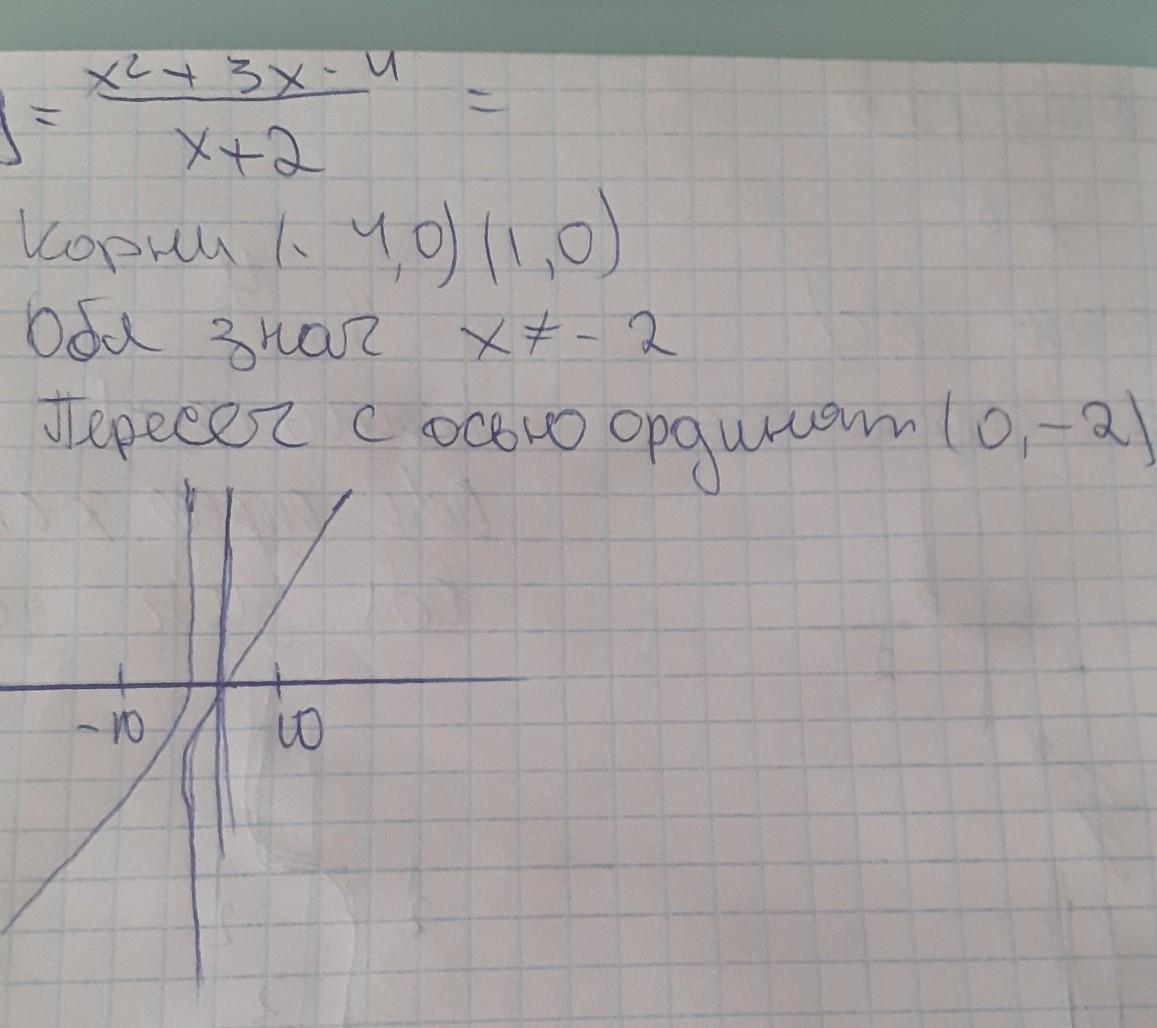 y = x² + 3x - 4 =
x + 2
Корни (- 4,0) (1,0)
Обл знач x ≠ - 2
Пересеч с осью ординат (0, -2)
-10 10